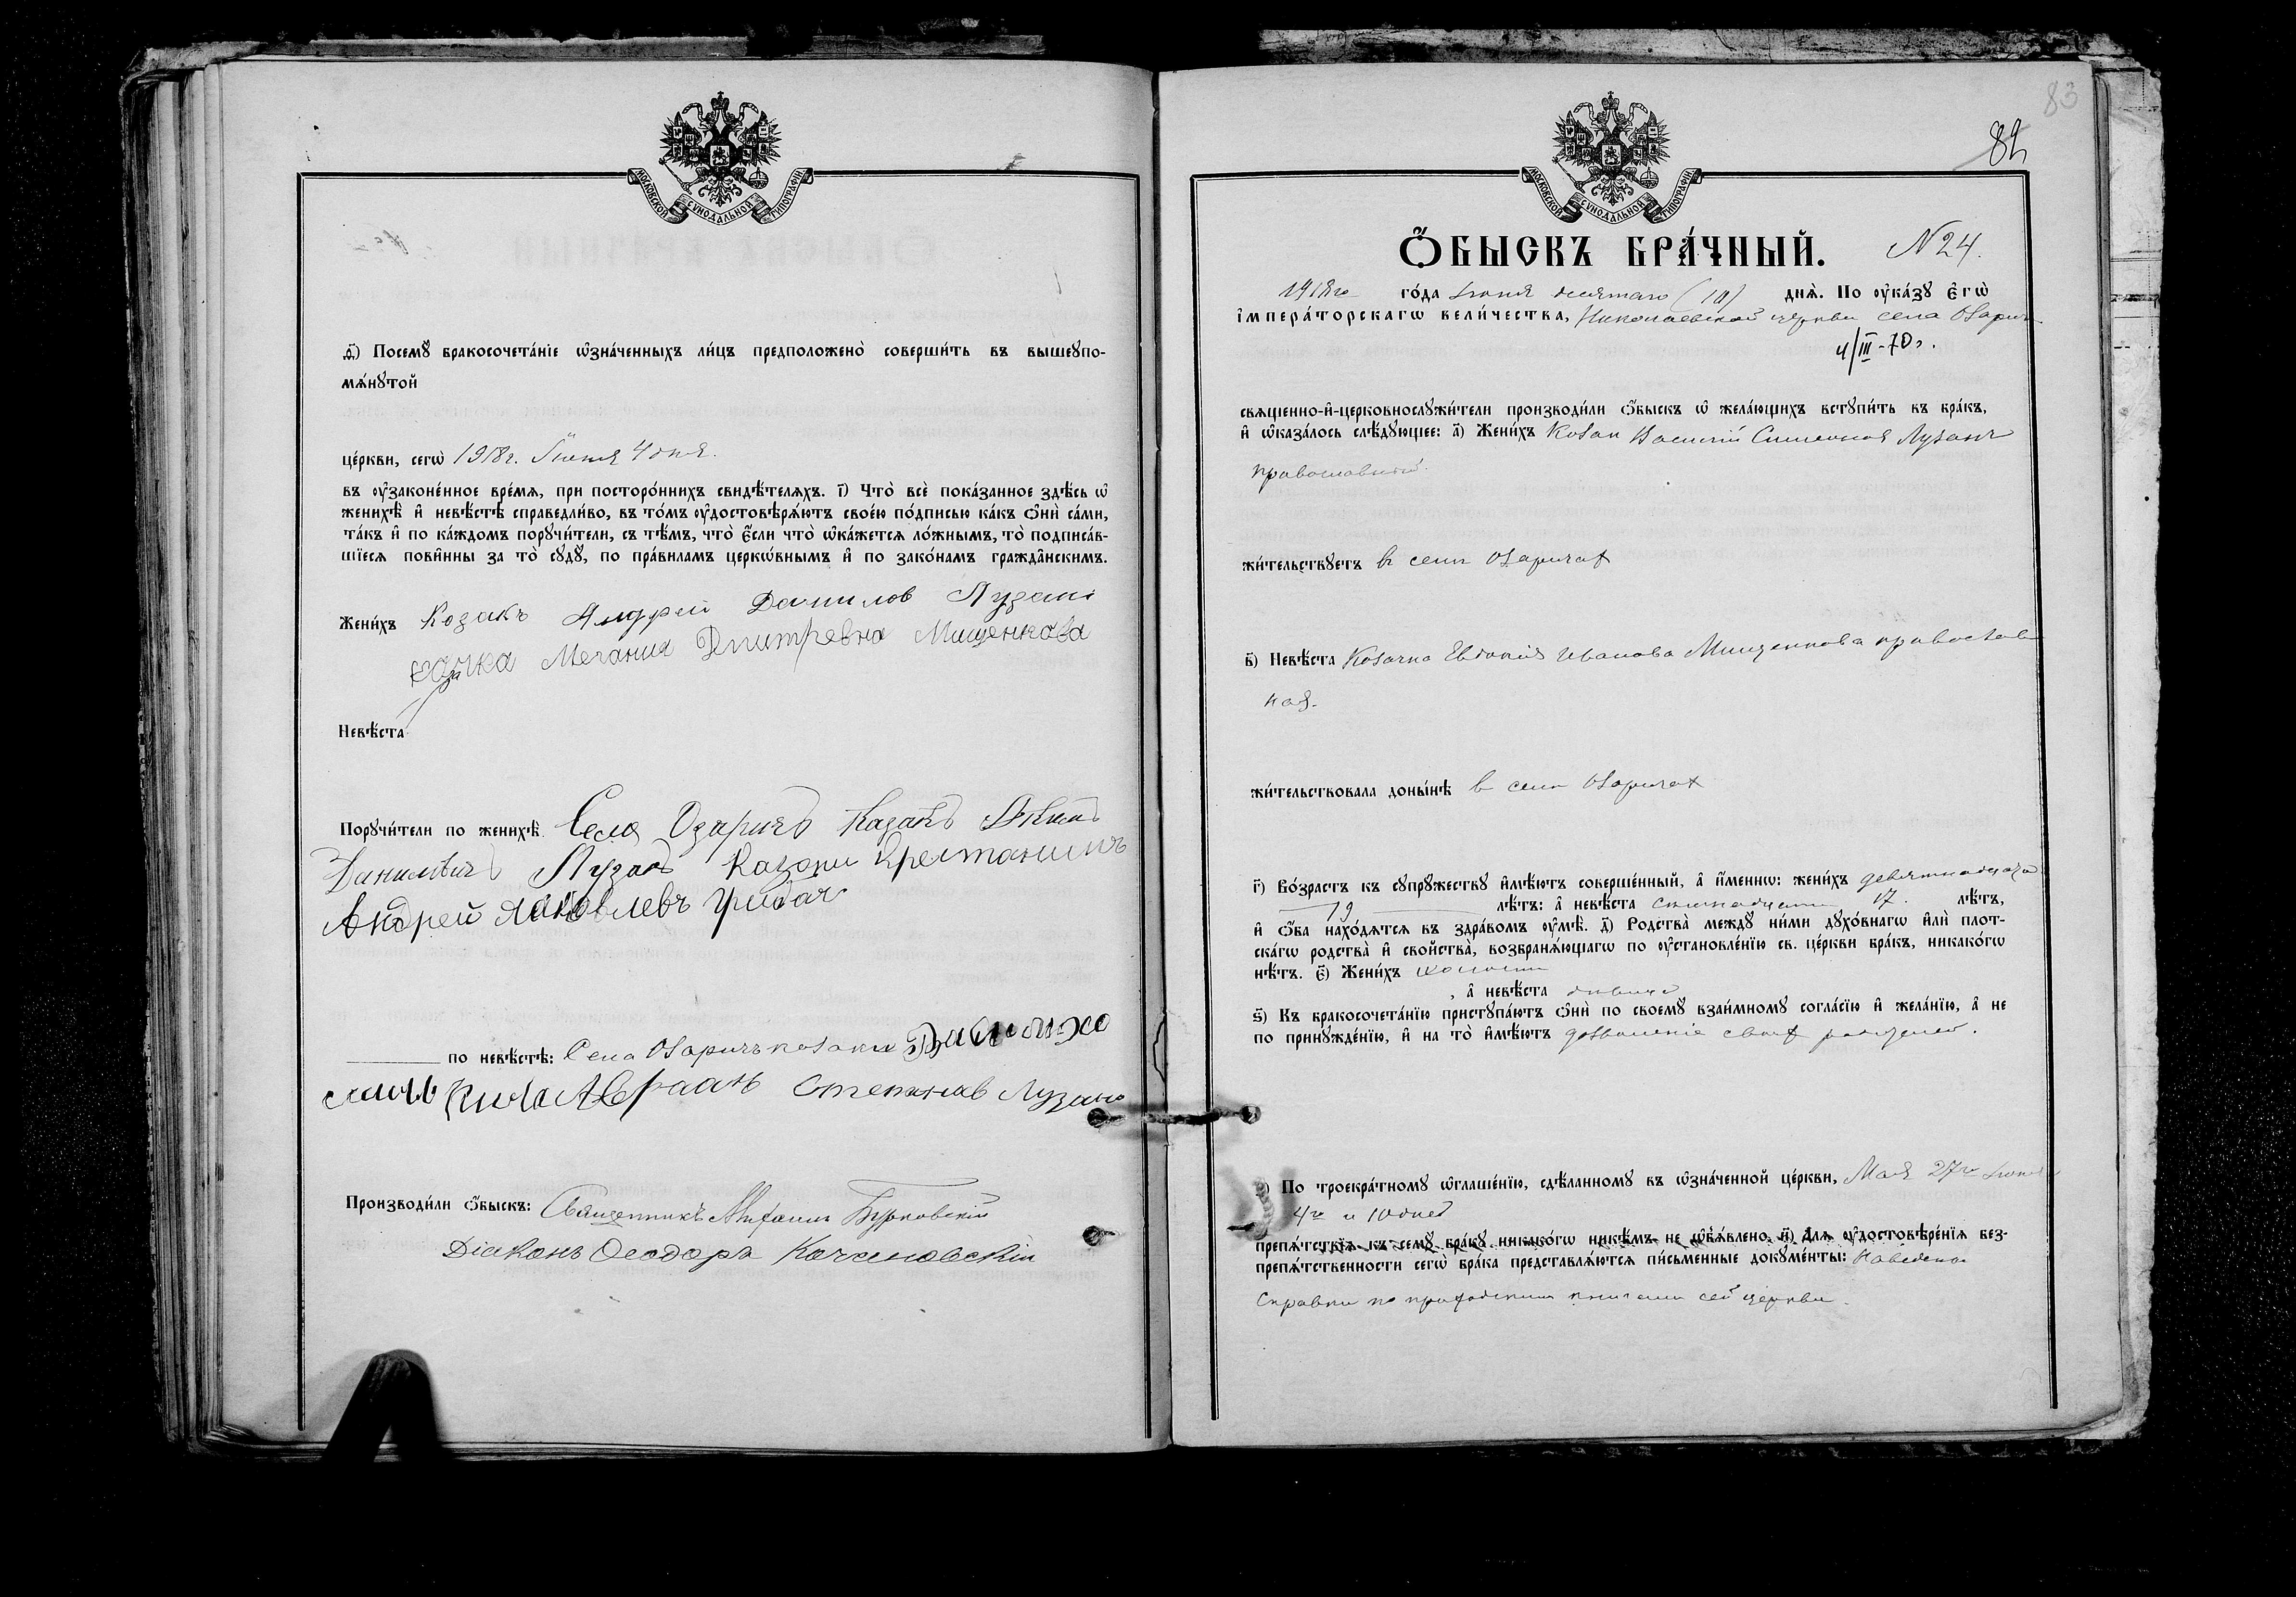 МОСКОВСКОЙ СѴНОДАЛЬНОЙ ТИПОГРАФІИ
ѳ҃) Посемꙋ̀ бракосочета́нїе ѡ҆зна́ченныхъ ли́цъ предположено̀ соверши́ть въ вышеꙋпо-
мѧ́нꙋтой
це́ркви, сегѡ̀ 1918 г. Іюня 4 дня.
въ ᲂу҆зако́ненное вре́мѧ, при посторо́ннихъ свидѣ́телѧхъ. і҃) Что̀ всѐ пока́занное здѣ́сь ѡ҆
женихѣ̀ и҆ невѣ́стѣ справедли́во, въ то́мъ ᲂу҆достовѣрѧ́ютъ свое́ю по́дписью ка́къ ѻ҆нѝ са́ми,
та́къ и҆ по ка́ждомъ порꙋчи́тели, съ тѣ́мъ, что̀ є҆́сли что̀ ѡ҆ка́жетсѧ ло́жнымъ, то̀ подписа́в-
шїесѧ пови́нны за то̀ сꙋдꙋ̀, по пра́виламъ церкѡ́внымъ и҆ по зако́намъ гражда̑нскимъ.
Жени́хъ Козакъ Андрей Данилов Лузанъ
козачка Мелания Дмитревна Мищенкова
Невѣ́ста
Порꙋчи́тели по женихѣ̀: Села Озаричъ Казакъ
Данилович Лузанъ Казаки крестанинъ
Андрей Яковлевъ Грибач
по невѣ́стѣ: Села Озаричъ козаки
Авраам Степанов Лузанъ
Производи́ли ѻ҆́быскъ: Священникъ Михаилъ Бурковскій
Діаконъ Ѳеодоръ
83
82
МОСКОВСКОЙ СѴНОДАЛЬНОЙ ТИПОГРАФІИ
Ѻ҆́БЫСКЪ БРА́ЧНЫЙ. N 24.
1918 го го́да Іюня десятаго (10) днѧ̀. По ᲂу҆ка́зꙋ є҆гѡ̀
і҆мпера́торскагѡ вели́чества, Николаевской церкви села Озаричъ
4/III-70 г.
свѧще́нно-и҆-церковнослꙋжи́тели производи́ли ѻ҆́быскъ ѡ҆ жела́ющихъ встꙋпи́ть въ бра́къ,
и҆ ѡ҆каза́лось слѣ́дꙋющее: а҃) Жени́хъ Козак Василій Симеонов Лузанъ
православный.
жи́тельствꙋетъ в селѣ Озаричах
в҃) Невѣ́ста Козачка Евдокія Иванова Мищенкова православ
ная.
жи́тельствовала доны́нѣ в селѣ Озаричах
г҃) Во́зрастъ къ сꙋпрꙋ́жествꙋ и҆мѣ́ютъ соверше́нный, а҆ и҆́меннѡ: жени́хъ девятнадцать
19 лѣ́тъ: а҆ невѣ́ста семнадцати 17. лѣ́тъ,
и҆ ѻ҆́ба нахо́дѧтсѧ въ здра́вомъ ᲂу҆мѣ̀. д҃) Родства̀ междꙋ̀ ни́ми дꙋхо́внагѡ и҆лѝ плот-
ска́гѡ родства̀ и҆ сво́йства, возбранѧ́ющагѡ по ᲂу҆становле́нїю св. це́ркви бра́къ, никако́гѡ
нѣ́тъ. є҃) Жени́хъ холостъ
, а҆ невѣ́ста дѣвица
ѕ҃) Къ бракосочета́нїю пристꙋпа́ютъ ѻ҆нѝ по своемꙋ̀ взаи́мномꙋ согла́сїю и҆ жела́нїю, а҆ не
по принꙋжде́нїю, и҆ на то̀ и҆мѣ́ютъ дозволеніе своих родителей.
По троекра́тномꙋ ѡ҆глаше́нїю, сдѣ́ланномꙋ въ ѡ҆зна́ченной це́ркви, Мая 27го Іюня
4го и 10 дней
препѧ́тствїѧ къ семꙋ̀ бра́кꙋ никако́гѡ никѣ́мъ не ѡ҆б̾ѧ́влено. и҃) Длѧ̀ ᲂу҆достовѣре́нїѧ без-
препѧ́тственности сегѡ̀ бра́ка представлѧ́ютсѧ пи́сьменные докꙋме́нты: Наведены
справки по приходским книгам сей церкви.